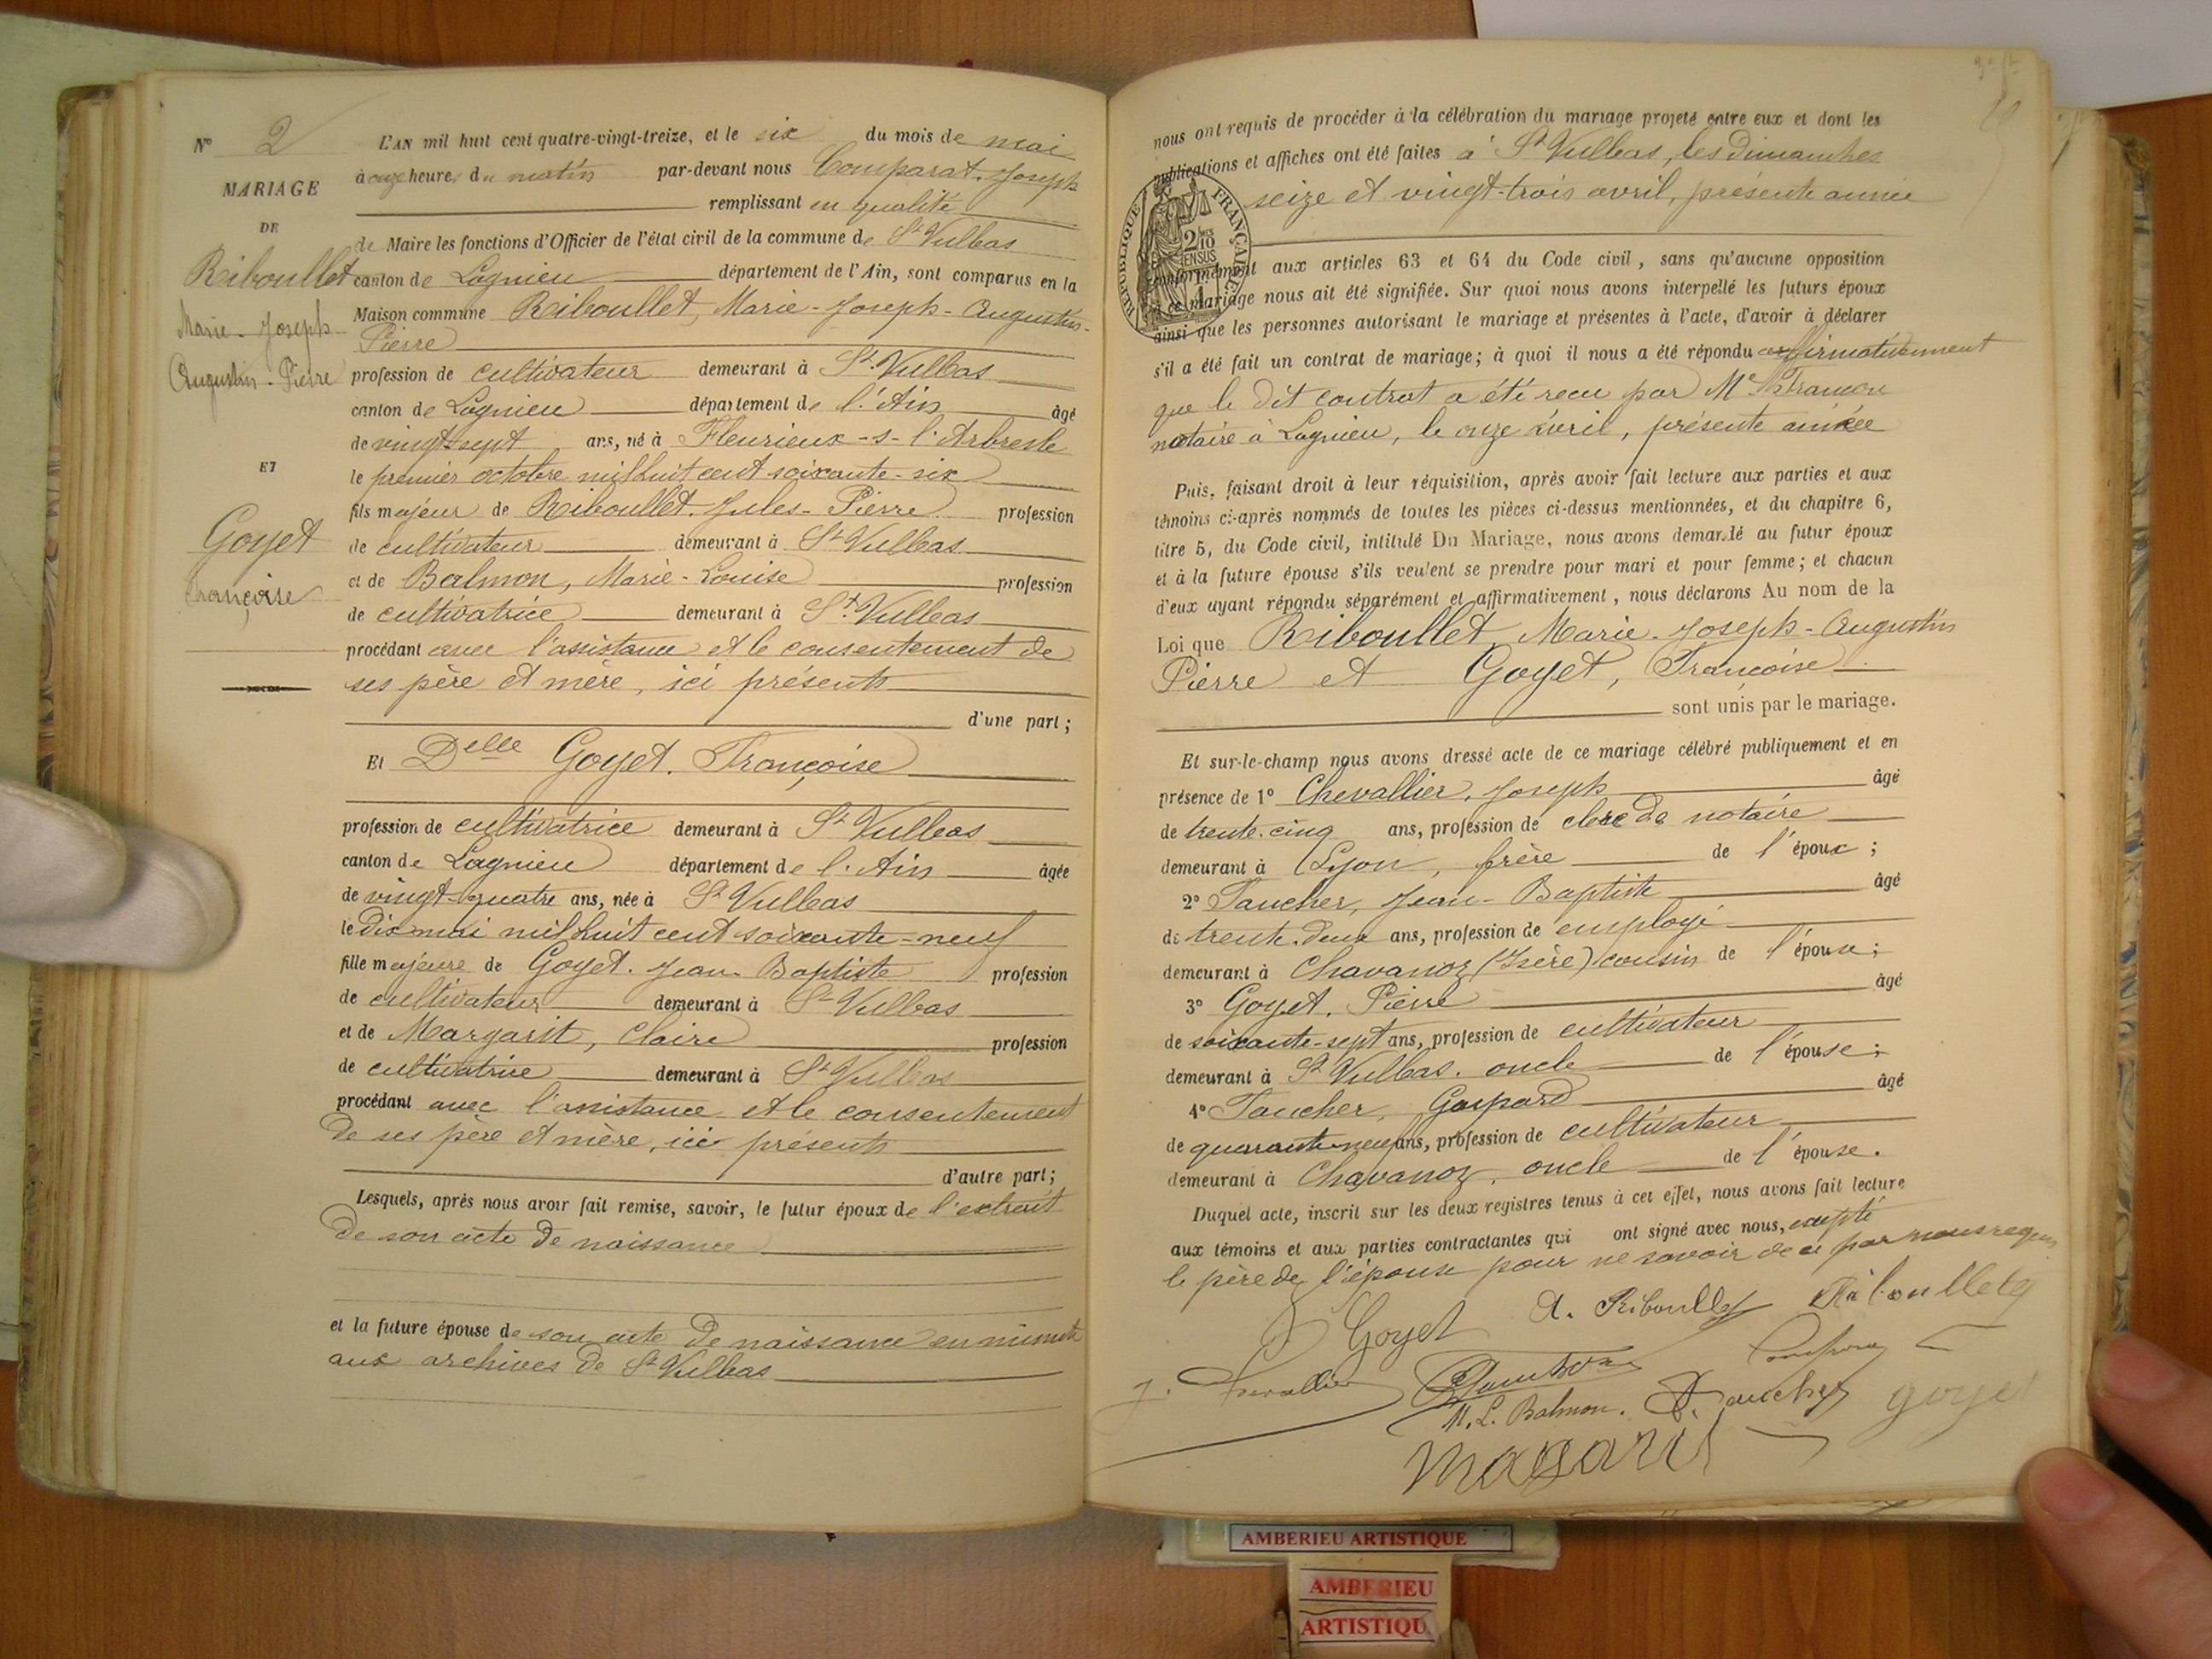 N° 2
MARIAGE
DE
Riboullet
Marie-Joseph
Augustin-Pierre
ET
Goyet
Françoise
L'AN mil huit cent quatre-vingt-treize, et le six du mois de mai
à onze heures du matin par-devant nous Comparat, Joseph
remplissant en qualité
de Maire les fonctions d'Officier de l'état civil de la commune de St Vulbas
canton de Lagnieu département de l'Ain, sont comparus en la
Maison commune Riboullet, Marie-Joseph-Augustin-
Pierre
profession de cultivateur demeurant à St Vulbas
canton de Lagnieu département de l'Ain âgé
de vingt-sept ans, né à Fleurieux-s-l'Arbresle
le premier octobre mil huit cent soixante-six
fils majeur de Riboullet, Jules-Pierre profession
de cultivateur demeurant à St Vulbas
et de Balmon, Marie-Louise profession
de cultivatrice demeurant à St Vulbas
procédant avec l'assistance et le consentement de
ses père et mère, ici présents
d'une part;
Et Delle Goyet, Françoise
profession de cultivatrice demeurant à St Vulbas
canton de Lagnieu département de l'Ain âgée
de vingt-quatre ans, née à St Vulbas
le dix mai mil huit cent soixante-neuf
fille majeure de Goyet, Jean-Baptiste profession
de cultivateur demeurant à St Vulbas
et de Margarit, Claire profession
de cultivatrice demeurant à St Vulbas
procédant avec l'assistance et le consentement
de ses père et mère, ici présents
d'autre part;
Lesquels, après nous avoir fait remise, savoir, le futur époux de l'extrait
de son acte de naissance
et la future épouse de son acte de naissance en minute
aux archives de St Vulbas
nous ont requis de procéder à la célébration du mariage projeté entre eux et dont les
publications et affiches ont été faites à St Vulbas, les dimanches
seize et vingt-trois avril, présente année
RÉPUBLIQUE FRANÇAISE
2/10 EN SUS
conformément aux articles 63 et 64 du Code civil, sans qu'aucune opposition
à ce mariage nous ait été signifiée. Sur quoi nous avons interpellé les futurs époux
ainsi que les personnes autorisant le mariage et présentes à l'acte, d'avoir à déclarer
s'il a été fait un contrat de mariage; à quoi il nous a été répondu affirmativement
que le dit contrat a été reçu par Me
notaire à Lagnieu, le onze avril, présente année
Puis, faisant droit à leur réquisition, après avoir fait lecture aux parties et aux
témoins ci-après nommés de toutes les pièces ci-dessus mentionnées, et du chapitre 6,
titre 5, du Code civil, intitulé Du Mariage, nous avons demandé au futur époux
et à la future épouse s'ils veulent se prendre pour mari et pour femme; et chacun
d'eux ayant répondu séparément et affirmativement, nous déclarons Au nom de la
Loi que Riboullet, Marie-Joseph-Augustin
Pierre et Goyet, Françoise
sont unis par le mariage.
Et sur-le-champ nous avons dressé acte de ce mariage célébré publiquement et en
présence de 1° Chevallier, Joseph âgé
de trente-cinq ans, profession de clerc de notaire
demeurant à Lyon, frère de l'époux;
2° Taucher, Jean-Baptiste âgé
de trente-deux ans, profession de employé
demeurant à Chavanoz (Isère) cousin de l'épouse;
3° Goyet, Pierre âgé
de soixante-sept ans, profession de cultivateur
demeurant à St Vulbas, oncle de l'épouse;
4° Taucher, Gaspard âgé
de quarante-neuf ans, profession de cultivateur
demeurant à Chavanoz, oncle de l'épouse.
Duquel acte, inscrit sur les deux registres tenus à cet effet, nous avons fait lecture
aux témoins et aux parties contractantes qui ont signé avec nous, excepté
le père de l'épouse pour ne savoir de ce par nous requis
Goyet A. Riboullet Riboullet
J. Chevallier
M. L. Balmon. Taucher goyet
magarit
AMBERIEU ARTISTIQUE
AMBERIEU
ARTISTIQU